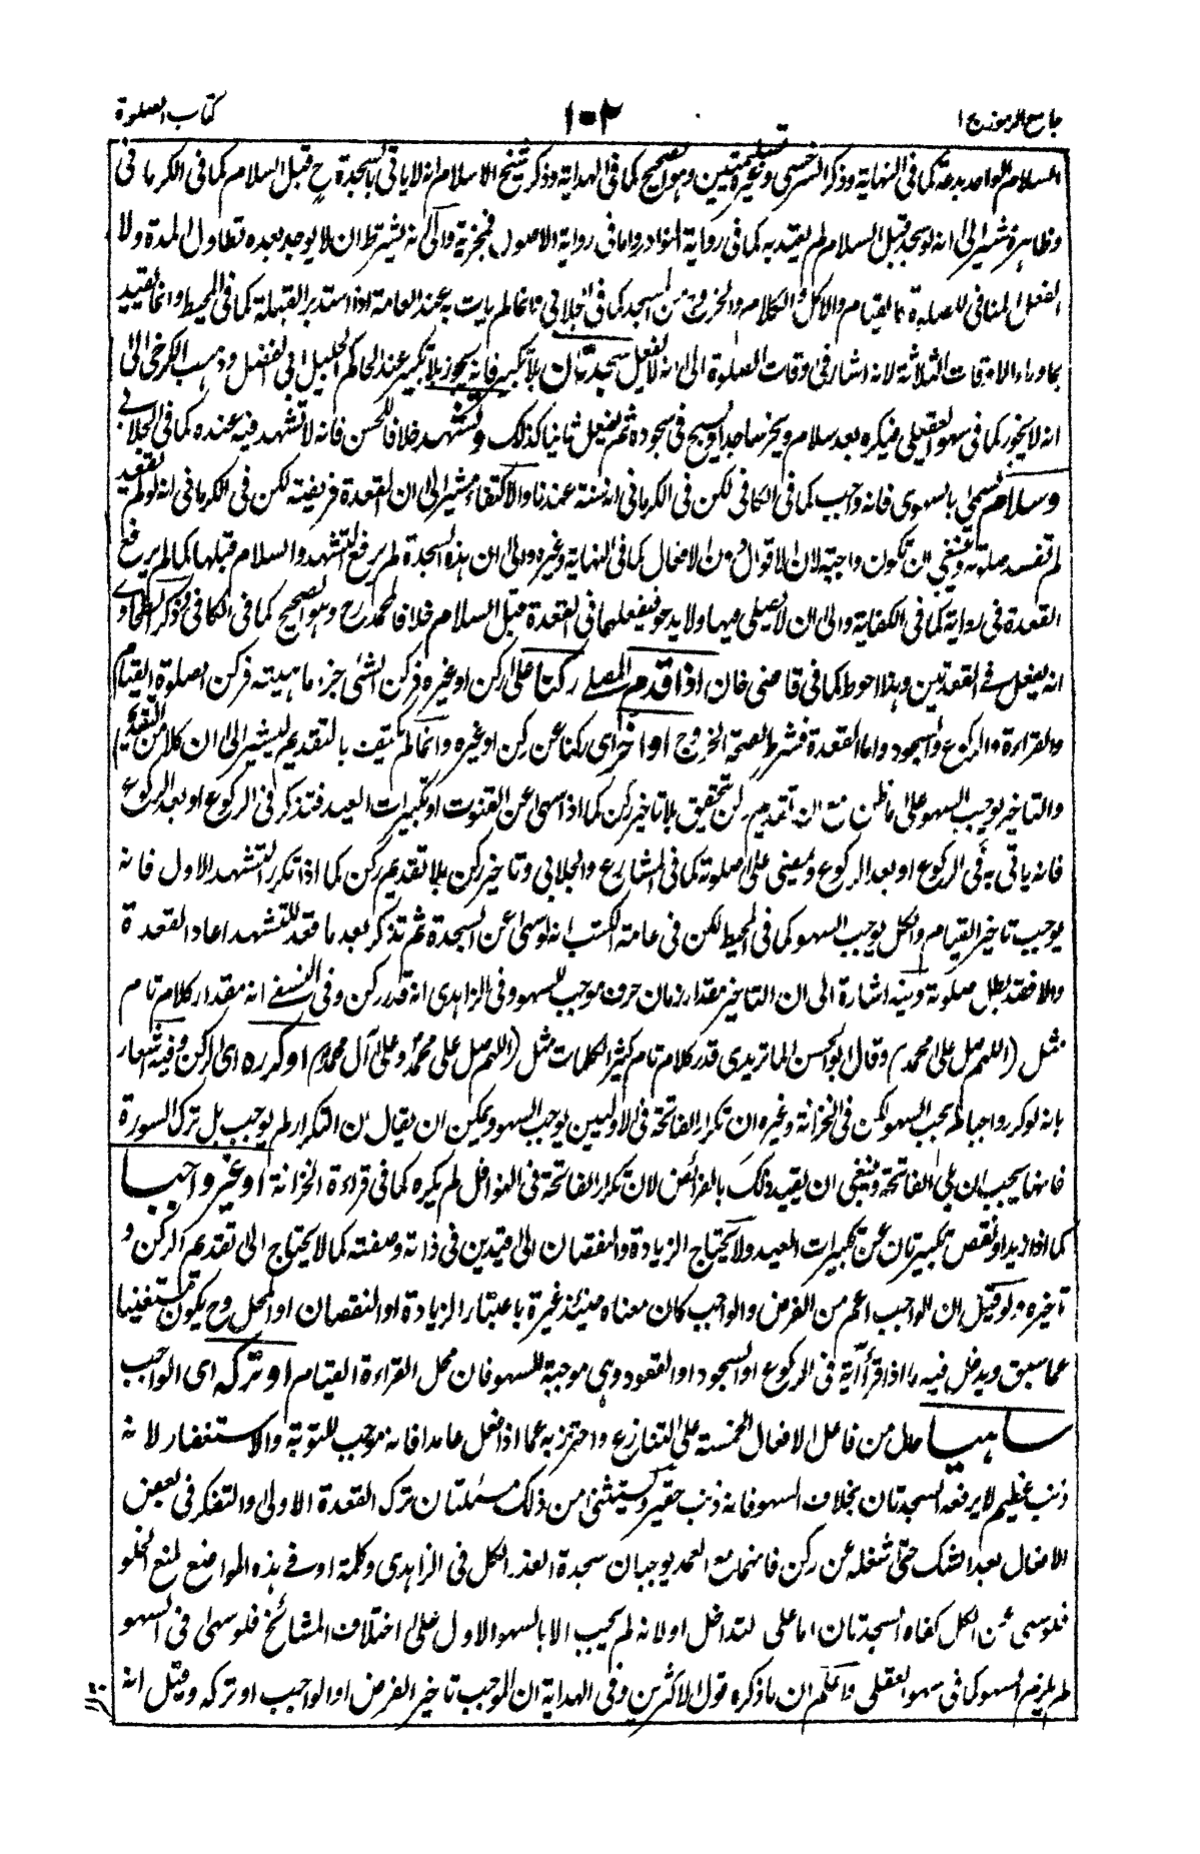 جامع الرموز ج ١
١٠٢
كتاب الصلوة
السلام الواحد بدعة كما فى النهاية وذكر السرخسى وغيره تسليمتين وهو الصحيح كما فى الهداية وذكر شيخ الاسلام انه لا ياتى بالسجدة ح قبل السلام كما فى الكرمانى
وظاهره مشير الى انه لو سجد قبل السلام لم يعتد به كما فى رواية النوادر واما فى رواية الاصول فيجزيه والى انه يشترط ان لا يوجد بعده تطاول المدة ولا
الفعل المنافى للصلوة كالقيام والاكل والكلام والخروج من المسجد كما فى الجلابى وانما لم يات به عند العامة اذا استدبر القبلة كما فى المحيط وانما يقيد
بما وراء الاوقات الثلاثة لانه اشار فى اوقات الصلوة الى انه لا يفعل سجدتان بلا تكبير فانه يجوز بلا تكبير عند الحاكم الجليل ابى الفضل وذهب الكرخى الى
انه لا يجوز كما فى سهو العقيلى فيكره بعد سلام ويخر ساجدا ويسبح فى سجوده ثم يفعل ثانيا كذلك وتشهد خلافا للحسن فانه لا تشهد فيه عنده كما فى الجلابى
وسلام يسمى بالسهوى فانه واجب كما فى الكافى لكن فى الكرمانى انه سنة عندنا والاكتفاء مشير الى ان القعدة فريضة لكن فى الكرمانى انه لو لم يقعد
لم تفسد صلوته وينبغى ان تكون واجبة لان الاقوال دون الافعال كما فى النهاية وغيره والى ان هذه السجدة لم يرفع التشهد والسلام قبلها كما لم يرفع
القعدة فى رواية كما فى الكفاية والى ان لا يصلى فيها ولا يدعو فيفعلهما فى القعدة قبل السلام خلافا لمحمد رح وهو الصحيح كما فى الكافى وذكر الطحاوى
انه يفعل فى القعدتين وهذا احوط كما فى قاضى خان اذا قدم المصلى ركنا على ركن او غيره فركن الشئ جزء ماهيته فركن الصلوة القيام
والقراءة والركوع والسجود واما القعدة فشرط لصحة الخروج او اخر اى ركنا عن ركن او غيره وانما لم يكتف بالتقديم ليشير الى ان كلا من التقديم
والتاخير يوجب السهو على ما ظن مع ان تقديم ركن يتحقق بلا تاخير ركن كما اذا سهى عن القنوت او تكبيرات العيد فتذكر فى الركوع او بعد الركوع
فانه ياتى به فى الركوع او بعد الركوع ويمضى على صلوته كما فى المشارع والجلابى وتاخير ركن بلا تقديم ركن كما اذا تكرر التشهد الاول فانه
يوجب تاخير القيام والكل يوجب السهو كما فى المحيط لكن فى عامة الكتب انه لو سهى عن السجدة ثم تذكر بعد ما قعد للتشهد اعاد القعدة
والا فقد بطل صلوته وفيه اشارة الى ان التاخير مقدار زمان حرف موجب للسهو وفى الزاهدى انه قدر ركن وفى النسفى انه مقدار كلام تام
مثل (اللهم صل على محمد) وقال ابو الحسن الماتريدى قدر كلام تام كثير الكلمات مثل (اللهم صل على محمد وعلى آل محمد) او كرره اى الركن وفيه اشعار
بانه لو كرر واجبا لم يجب السهو لكن فى الخزانة وغيره ان تكرار الفاتحة فى الاوليين يوجب السهو ويمكن ان يقال ان التكرار لم يوجب بل ترك السورة
فانها يجب ان يلى الفاتحة وينبغى ان يقيد ذلك بالفرائض لان تكرار الفاتحة فى النوافل لم يكره كما فى قراءة الخزانة او غير واجبا
كما اذا زيد او نقص تكبيرتان عن تكبيرات العيد ولا يحتاج الزيادة والنقصان الى قيدين فى ذاته وصفته كما لا يحتاج الى تقديم الركن و
تاخيره ولو قيل ان الواجب اعم من الفرض والواجب كان معناه حينئذ غيره باعتبار الزيادة او النقصان او المحل وح يكون مستغنيا
عما سبق ويدخل فيه ما اذا قرأ آية فى الركوع او السجود او القعود وهى موجبة للسهو فان محل القراءة القيام او تركه اى الواجب
ساهيا حال من فاعل الافعال الخمسة على التنازع واحترز به عما اذا فعل عامدا فانه موجب للتوبة والاستغفار لانه
ذنب عظيم لا يرفعه السجدتان بخلاف السهو فانه ذنب حقير ويستثنى من ذلك مسئلتان ترك القعدة الاولى والتفكر فى بعض
الافعال بعد الشك حتى شغله عن ركن فانهما مع العمد يوجبان سجدة العذر الكل فى الزاهدى وكلمة او فى هذه المواضع لمنع الخلو
فلو سهى عن الكل كفاه السجدتان اما على التداخل او لانه لم يجب الا بالسهو الاول على اختلاف المشائخ فلو سهى فى السهو
لم يلزم السهو كما فى سهو العقلى واعلم ان ما ذكره قول الاكثرين وفى الهداية ان الموجب تاخير الفرض او الواجب او تركه وقيل انه